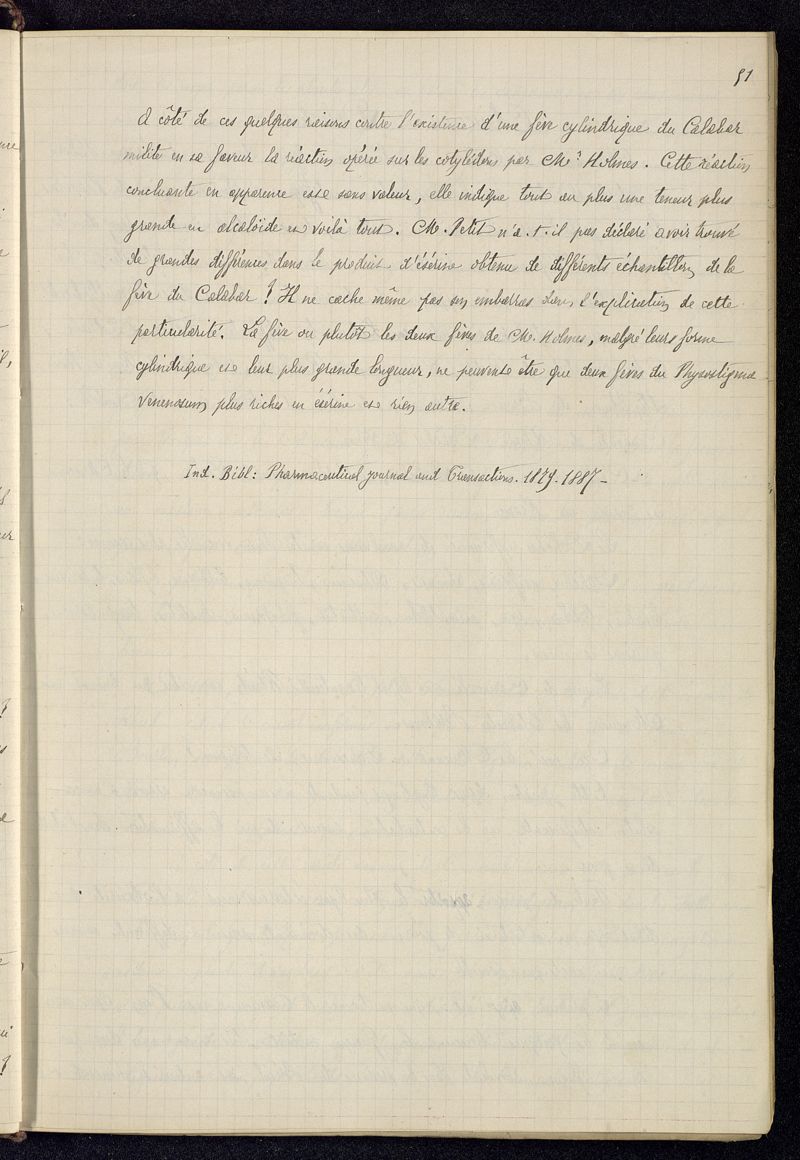 51
A côté de ces quelques raisons contre l'existence d'une fève cylindrique du Calabar
milite en sa faveur la réaction opérée sur les cotylédons par Mr Holmes. Cette réaction
concluante en apparence est sans valeur, elle indique tout au plus une teneur plus
grande en alcaloïde et voilà tout. M. Petit n'a-t-il pas déclaré avoir trouvé
de grandes différences dans le produit d'ésérine obtenu de différents échantillons de la
fève du Calabar ? Il ne cache même pas son embarras dans l'explication de cette
particularité. La fève ou plutôt les deux fèves de M. Holmes, malgré leurs forme
cylindrique et leur plus grande longueur, ne peuvent être que deux fèves du Physostigma
venenosum plus riches en ésérine et rien autre.
Ind. Bibl: Pharmaceutical journal and Transactions. 1879-1887-